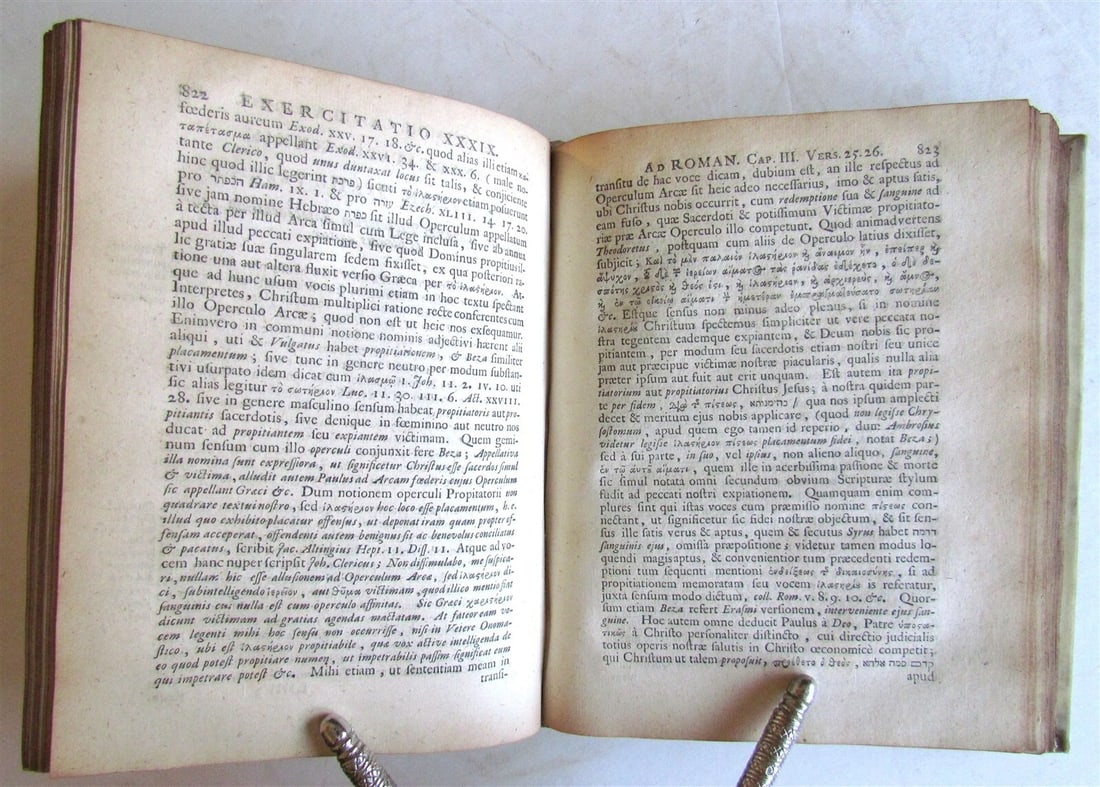 822 EXERCITATIO XXXIX.
fœderis aureum Exod. xxv. 17. 18. &c. quod alias illi etiam κα-
ταπέτασμα appellant Exod. xxvi. 34. & xxx. 6. (male no-
tante Clerico, quod unus duntaxat locus sit talis, & conjiciente
hinc quod illic legerint פרכת) sicuti τὸ ἱλαστήριον etiam posuerunt
pro הכפתר Ham. ix. 1. & pro עזרה Ezech. xliii. 14. 17. 20.
sive jam nomine Hebræo כפרת sit illud Operculum appellatum
à tecta per illud Arca simul cum Lege inclusa, sive ab annua
apud illud peccati expiatione, sive quod Dominus propitius il-
lic gratiæ suæ singularem sedem fixisset, ex qua posteriori ra-
tione una aut altera fluxit versio Græca per τὸ ἱλαστήριον. At-
que ad hunc usum vocis plurimi etiam in hoc textu spectant
Interpretes, Christum multiplici ratione recte conferentes cum
illo Operculo Arcæ; quod non est ut heic nos exsequamur.
Enimvero in communi notione nominis adjectivi hærent alii
aliqui, uti & Vulgatus habet propitiationem, & Beza similiter
placamentum; sive tunc in genere neutro per modum substan-
tivi usurpato idem dicat cum ἱλασμῷ 1. Joh. 11. 2. iv. 10. uti
sic alias legitur τὸ σωτήριον Luc. 11. 30. 111. 6. Act. xxviii.
28. sive in genere masculino sensum habeat propitiatoris aut pro-
pitiantis sacerdotis, sive denique in fœminino aut neutro nos
ducat ad propitiantem seu expiantem victimam. Quem gemi-
num sensum cum illo operculi conjunxit fere Beza; Appellativa
illa nomina sunt expressiora, ut significetur Christus esse sacerdos simul
& victima, alludit autem Paulus ad Arcam fœderis cujus Operculum
sic appellant Græci &c. Dum notionem operculi Propitiatorii non
quadrare textui nostro, sed ἱλαστήριον hoc loco esse placamentum, h.e.
illud quo exhibito placatur offensus, ut deponat iram quam propter of-
fensam acceperat, offendenti autem benignus sit ac benevolus conciliatus
& pacatus, scribit Jac. Altingius Hept. 11. Diss. 11. Atque ad vo-
cem hanc nuper scripsit Joh. Clericus; Non dissimulabo, me suspica-
ri, nullam hic esse allusionem ad Operculum Arcæ, sed ἱλαστήριον di-
ci, subintelligendo ἱερεῖον, aut θῦμα victimam, quod illico mentio fiat
sanguinis cui nulla est cum operculo affinitas. Sic Græci χαριστήριον
dicunt victimam ad gratias agendas mactatam. At fateor eam vo-
cem legenti mihi hoc sensu non occurrisse, nisi in Vetere Onoma-
stico, ubi est ἱλαστήριον propitiabile, quæ vox active intelligenda de
eo quod potest propitiare numen, ut impetrabilis passim significat eum
qui impetrare potest &c. Mihi etiam, ut sententiam meam in
transi-
AD ROMAN. CAP. III. VERS. 25. 26. 823
transitu de hac voce dicam, dubium est, an ille respectus ad
Operculum Arcæ sit heic adeo necessarius, imo & aptus satis,
ubi Christus nobis occurrit, cum redemptione sua & sanguine ad
eam fuso, quæ Sacerdoti & potissimum Victimæ propitiato-
riæ præ Arcæ Operculo illo competunt. Quod animadvertens
Theodoretus, postquam cum aliis de Operculo latius dixisset,
subjicit; Καὶ τὸ μὲν παλαιὸν ἱλαστήριον καὶ ἄναιμον ἦν, ἐπείπερ καὶ
ἄψυχον, τὸ δὲ τῶν ἱερείων αἵματος τὰς ρανίδας ἐδέχετο, ὁ δὲ δε-
σπότης χριστὸς καὶ θεός ἐστι, καὶ ἱλαστήριον, καὶ ἀρχιερεὺς, καὶ ἀμνὸς,
καὶ ἐν τῷ οἰκείῳ αἵματι τὴν ἡμετέραν ἐπραγματεύσατο σωτηρίαν
&c. Estque sensus non minus adeo plenus, si in nomine
ἱλαστηρίου Christum spectemus simpliciter ut vere peccata no-
stra tegentem eademque expiantem, & Deum nobis sic pro-
pitiantem, per modum seu sacerdotis etiam nostri seu unice
jam aut præcipue victimæ nostræ piacularis, qualis nulla alia
præter ipsum aut fuit aut erit unquam. Est autem ita propi-
tiatorium aut propitiatorius Christus Jesus; à nostra quidem par-
te per fidem, διὰ τῆς πίστεως, בהימנותא / qua nos ipsum amplecti
decet & meritum ejus nobis applicare, (quod non legisse Chry-
sostomum, apud quem ego tamen id reperio, dum Ambrosius
videtur legisse ἱλαστήριον πίστεως placamentum fidei, notat Beza;)
sed à sui parte, in suo, vel ipsius, non alieno aliquo, sanguine,
ἐν τῷ αὑτοῦ αἵματι, quem ille in acerbissima passione & morte
sic simul notata omni secundum obvium Scripturæ stylum
fudit ad peccati nostri expiationem. Quamquam enim com-
plures sint qui istas voces cum præmisso nomine πίστεως con-
nectant, ut significetur sic fidei nostræ objectum, & sit sen-
sus ille satis verus & aptus, quem & secutus Syrus habet דדמה
sanguinis ejus, omissa præpositione; videtur tamen modus lo-
quendi magis aptus, & convenientior tum præcedenti redem-
ptioni tum sequenti mentioni ἐνδείξεως τῆς δικαιοσύνης, si ad
propitiationem memoratam seu vocem ἱλαστήριον is referatur,
juxta sensum modo dictum, coll. Rom. v. 8. 9. 10. &c. Quor-
sum etiam Beza refert Erasmi versionem, interveniente ejus san-
guine. Hoc autem omne deducit Paulus à Deo, Patre ὑποστα-
τικῶς à Christo personaliter distincto, cui directio judicialis
totius operis nostræ salutis in Christo œconomicè competit;
qui Christum ut talem proposuit, προέθετο ὁ θεὸς, קדמה סמה אלהא
apud